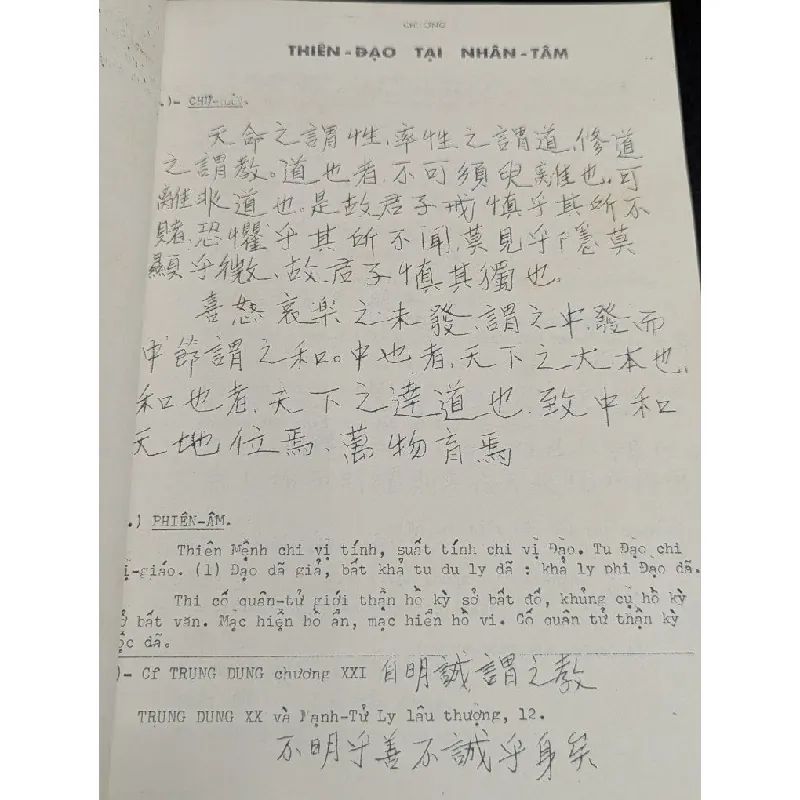 CHƯƠNG
THIÊN-ĐẠO TẠI NHÂN-TÂM
.)- CHỮ
天命之謂性、率性之謂道、修道
之謂教。道也者、不可須臾離也、可
離非道也。是故君子戒慎乎其所不
睹、恐懼乎其所不聞、莫見乎隱莫
顯乎微、故君子慎其獨也、
喜怒哀樂之未發、謂之中、發而
中節謂之和。中也者、天下之大本也、
和也者、天下之達道也、致中和
天地位焉、萬物育焉
.) PHIÊN-ÂM.
Thiên Mệnh chi vị tính, suất tính chi vị Đạo. Tu Đạo chi
ị-giáo. (1) Đạo dã giả, bất khả tu du ly dã : khả ly phi Đạo dã.
Thị cố quân-tử giới thận hồ kỳ sở bất đổ, khủng cụ hồ kỳ
ở bất văn. Mạc hiện hồ ẩn, mạc hiển hồ vi. Cố quân tử thận kỳ
ộc dã.
)- Cf TRUNG DUNG chương XXI 自明誠謂之教
TRUNG DUNG XX và Mạnh-Tử Ly lâu thượng, 12.
不明乎善不誠乎身矣